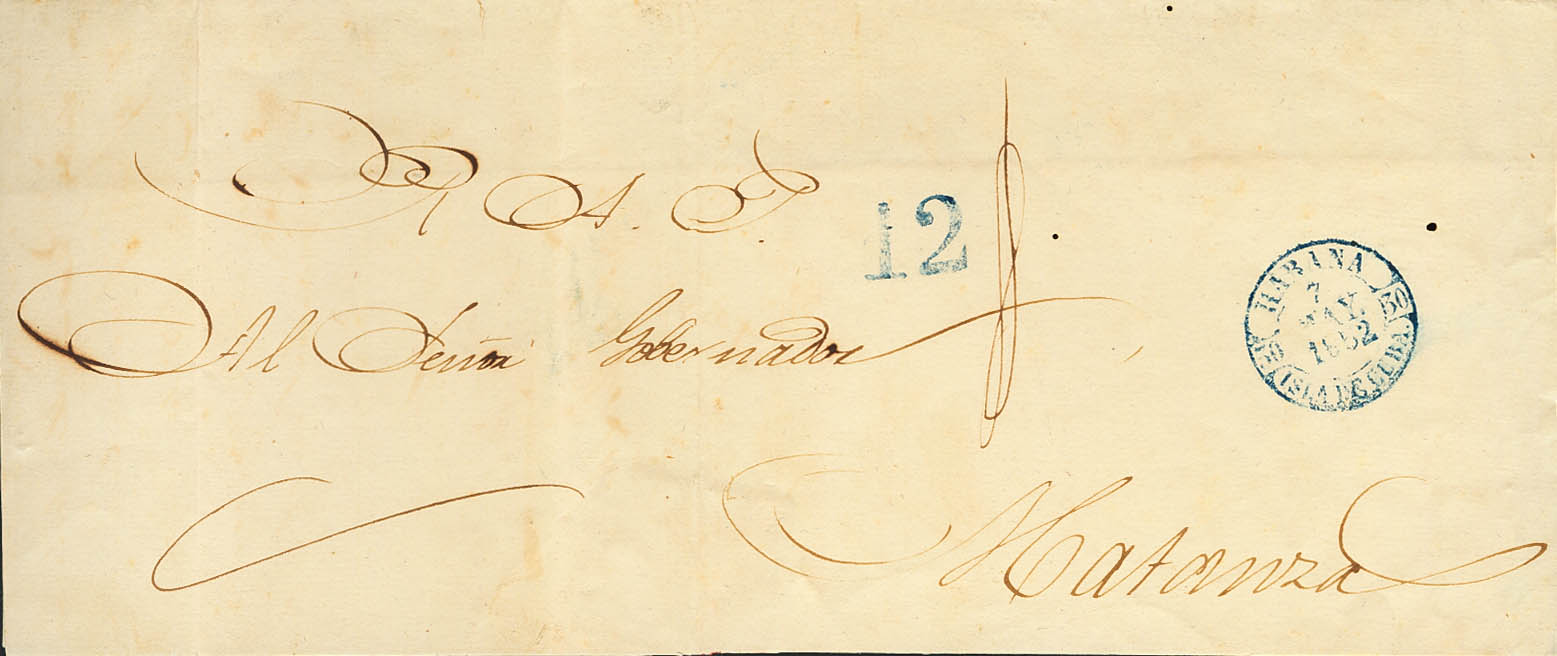 R. A. P.
12
Al Señor Gobernador
HABANA
7
MAY.
1852
ISLA DE CUBA
Matanza